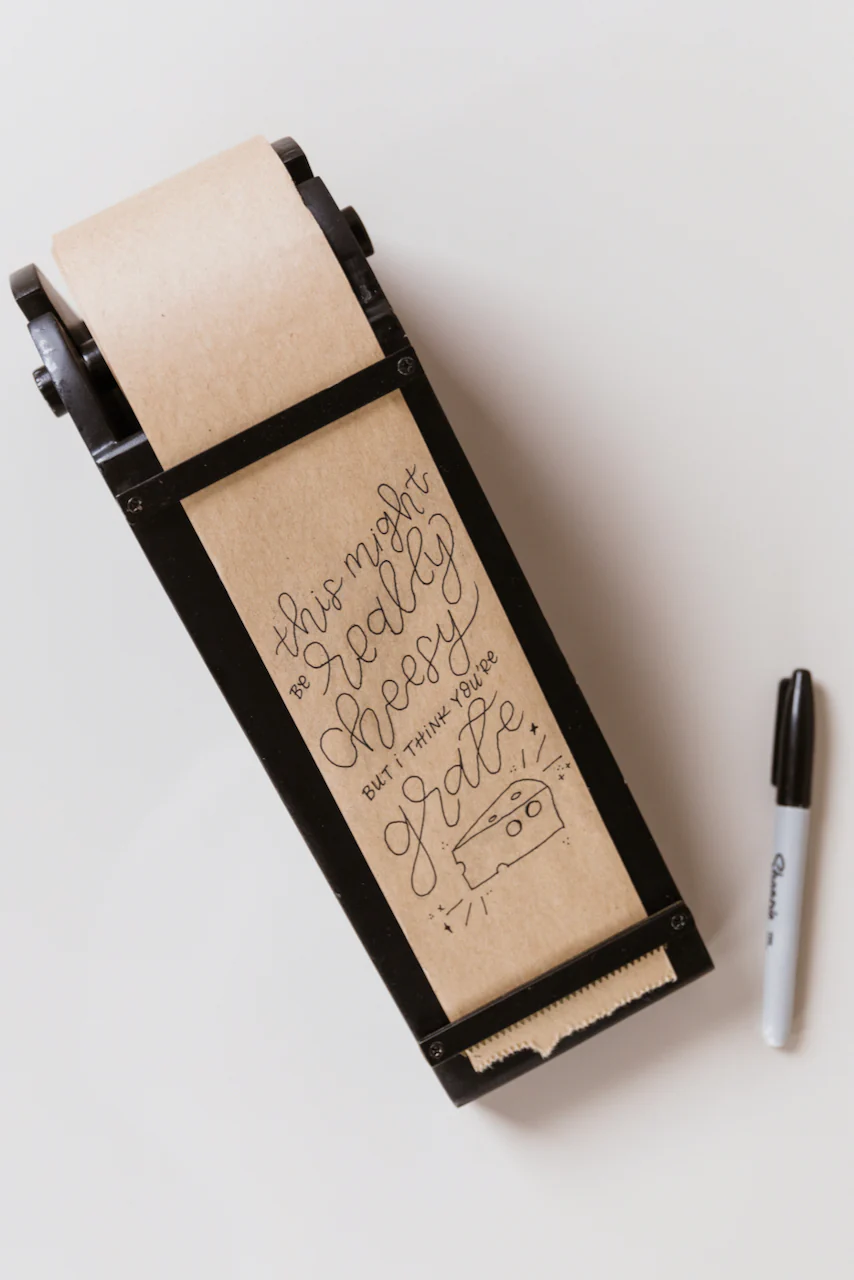 this might
BE really
cheesy
BUT i THINK YOU'RE
grate
Sharpie